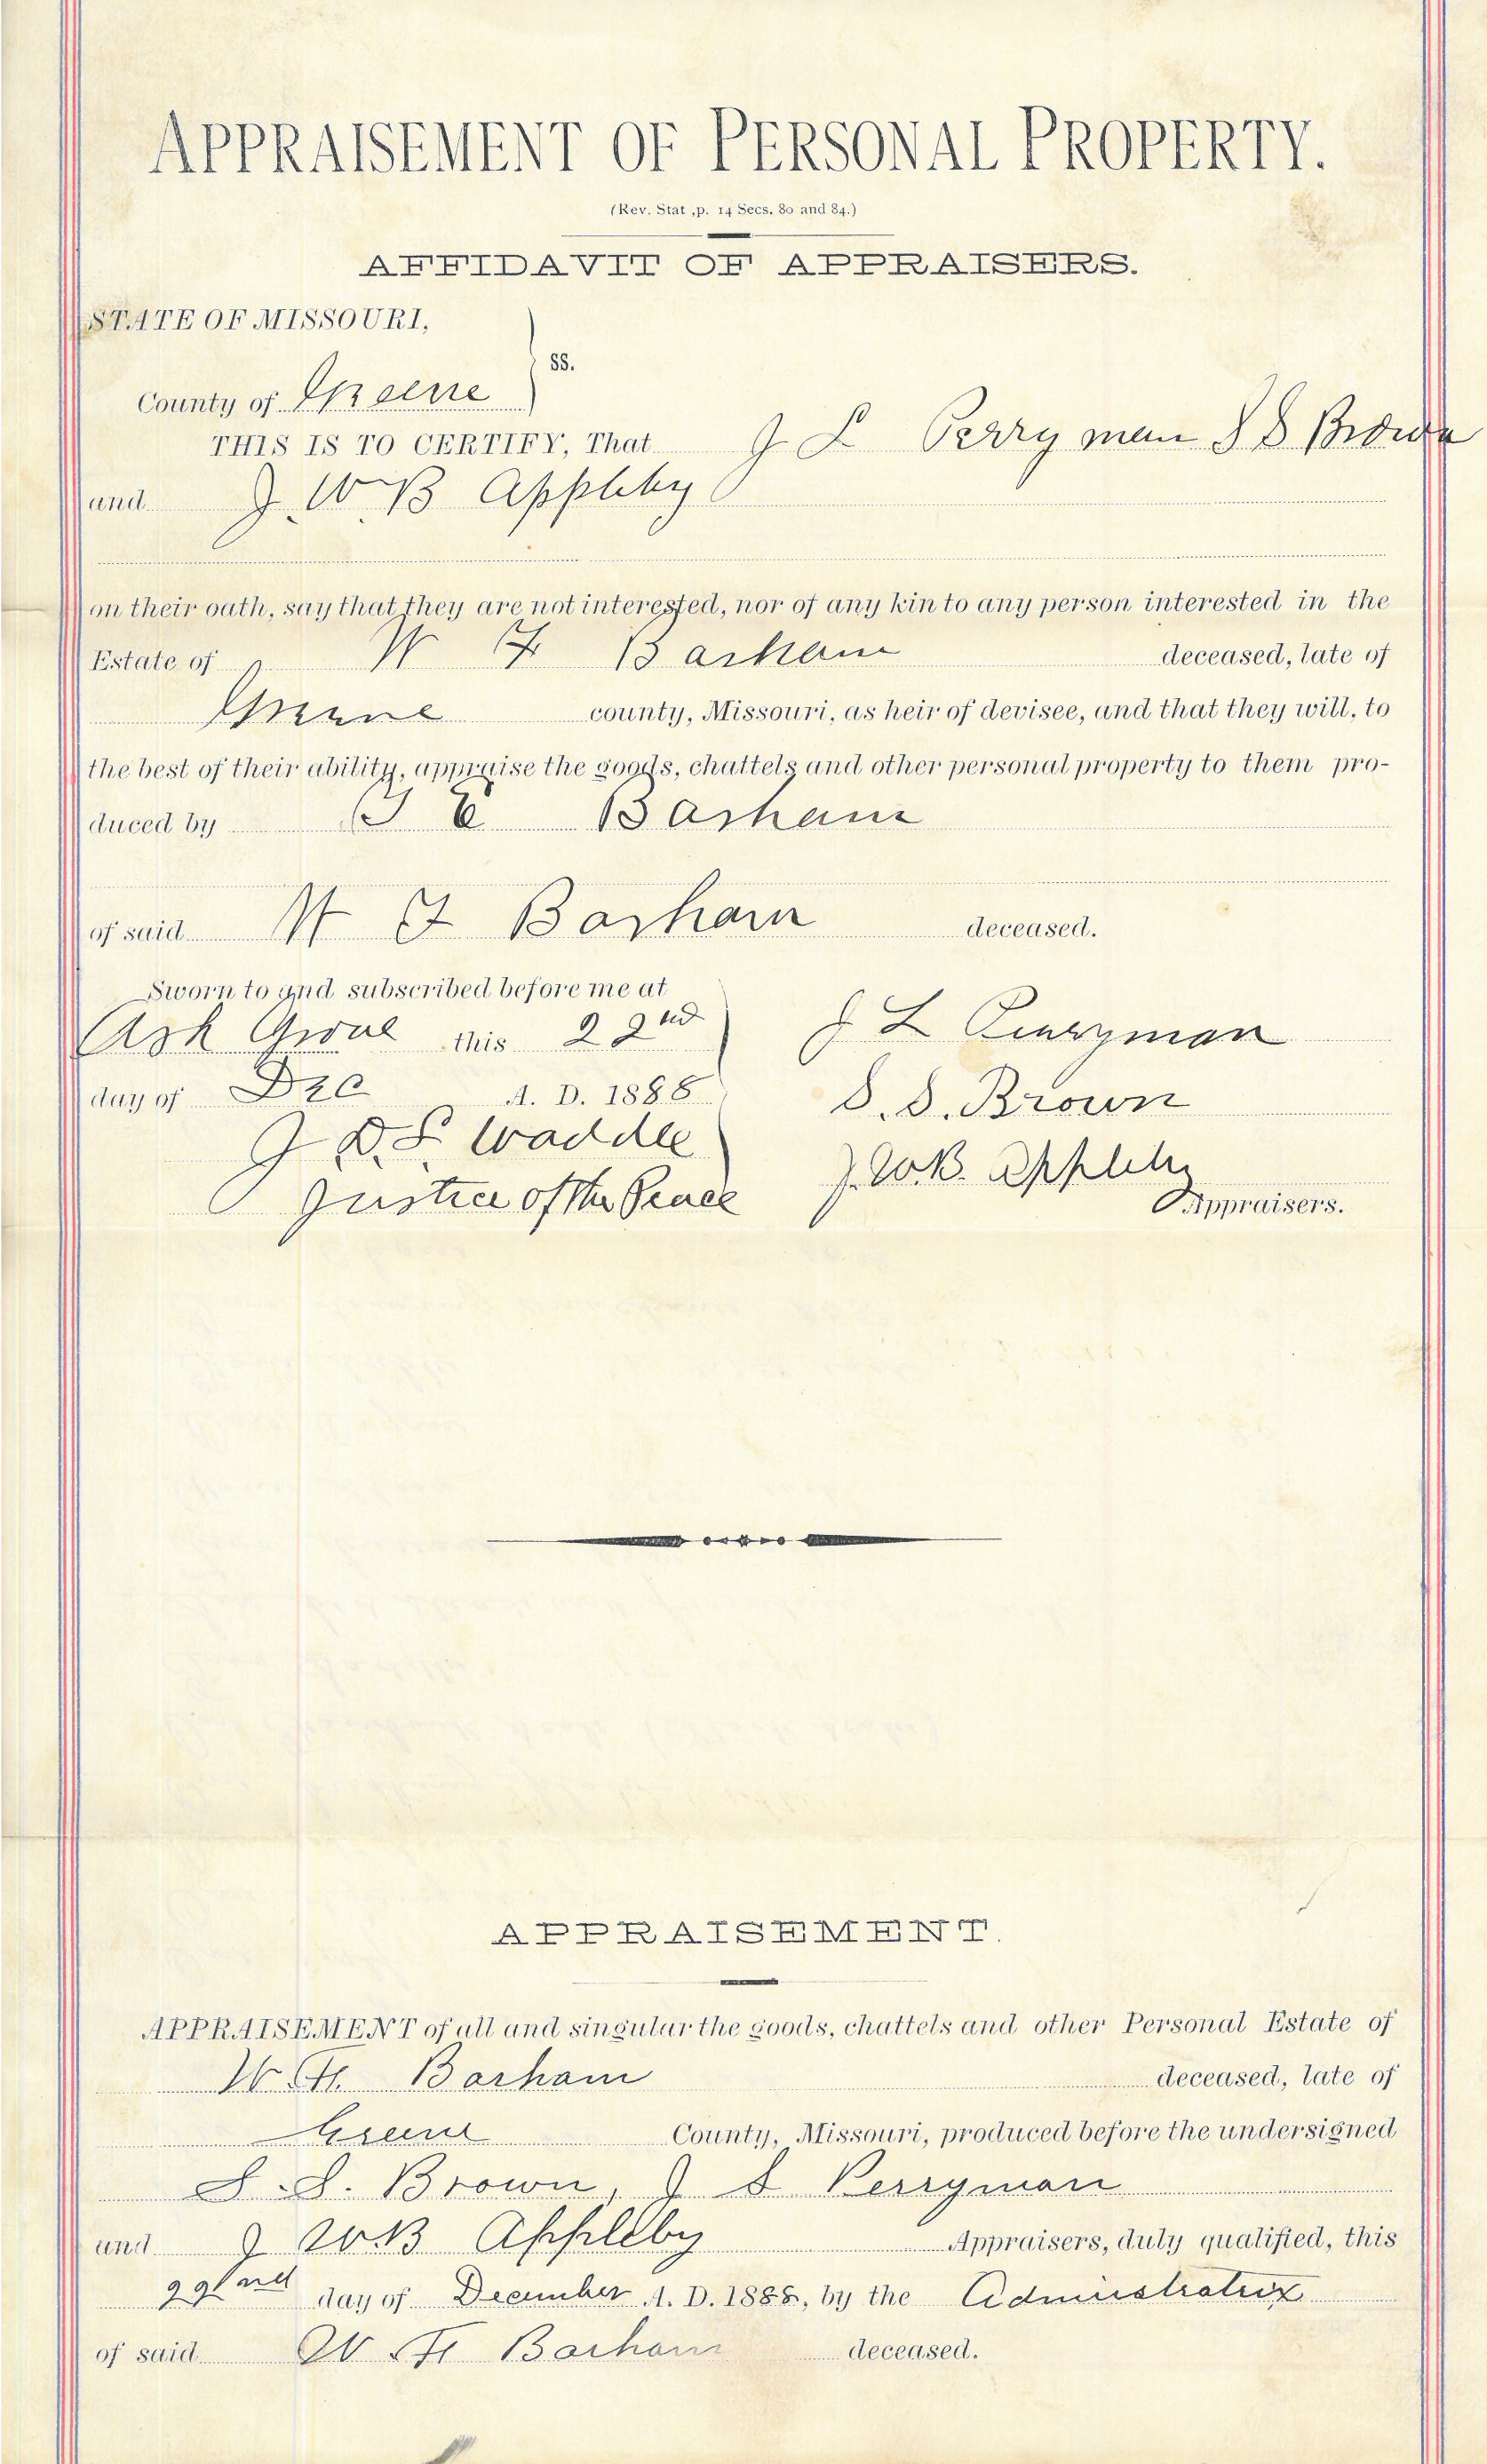 APPRAISEMENT OF PERSONAL PROPERTY.
(Rev. Stat ,p. 14 Secs. 80 and 84.)
AFFIDAVIT OF APPRAISERS.
STATE OF MISSOURI,
ss.
County of Greene
THIS IS TO CERTIFY, That J L Perryman S S Brown
and J. W. B Appleby
on their oath, say that they are not interested, nor of any kin to any person interested in the
Estate of W F Barham deceased, late of
Greene county, Missouri, as heir of devisee, and that they will, to
the best of their ability, appraise the goods, chattels and other personal property to them pro-
duced by E Barham
of said W F Barham deceased.
Sworn to and subscribed before me at
Ash Grove this 22nd
day of Dec A. D. 1888
J. D. S. Waddle
Justice of the Peace
J L Perryman
S. S. Brown
J. W. B. Appleby
Appraisers.
APPRAISEMENT.
APPRAISEMENT of all and singular the goods, chattels and other Personal Estate of
W. F. Barham deceased, late of
Greene County, Missouri, produced before the undersigned
S. S. Brown, J L Perryman
and J W. B Appleby Appraisers, duly qualified, this
22nd day of December A. D. 1888, by the Administratrix
of said W F Barham deceased.